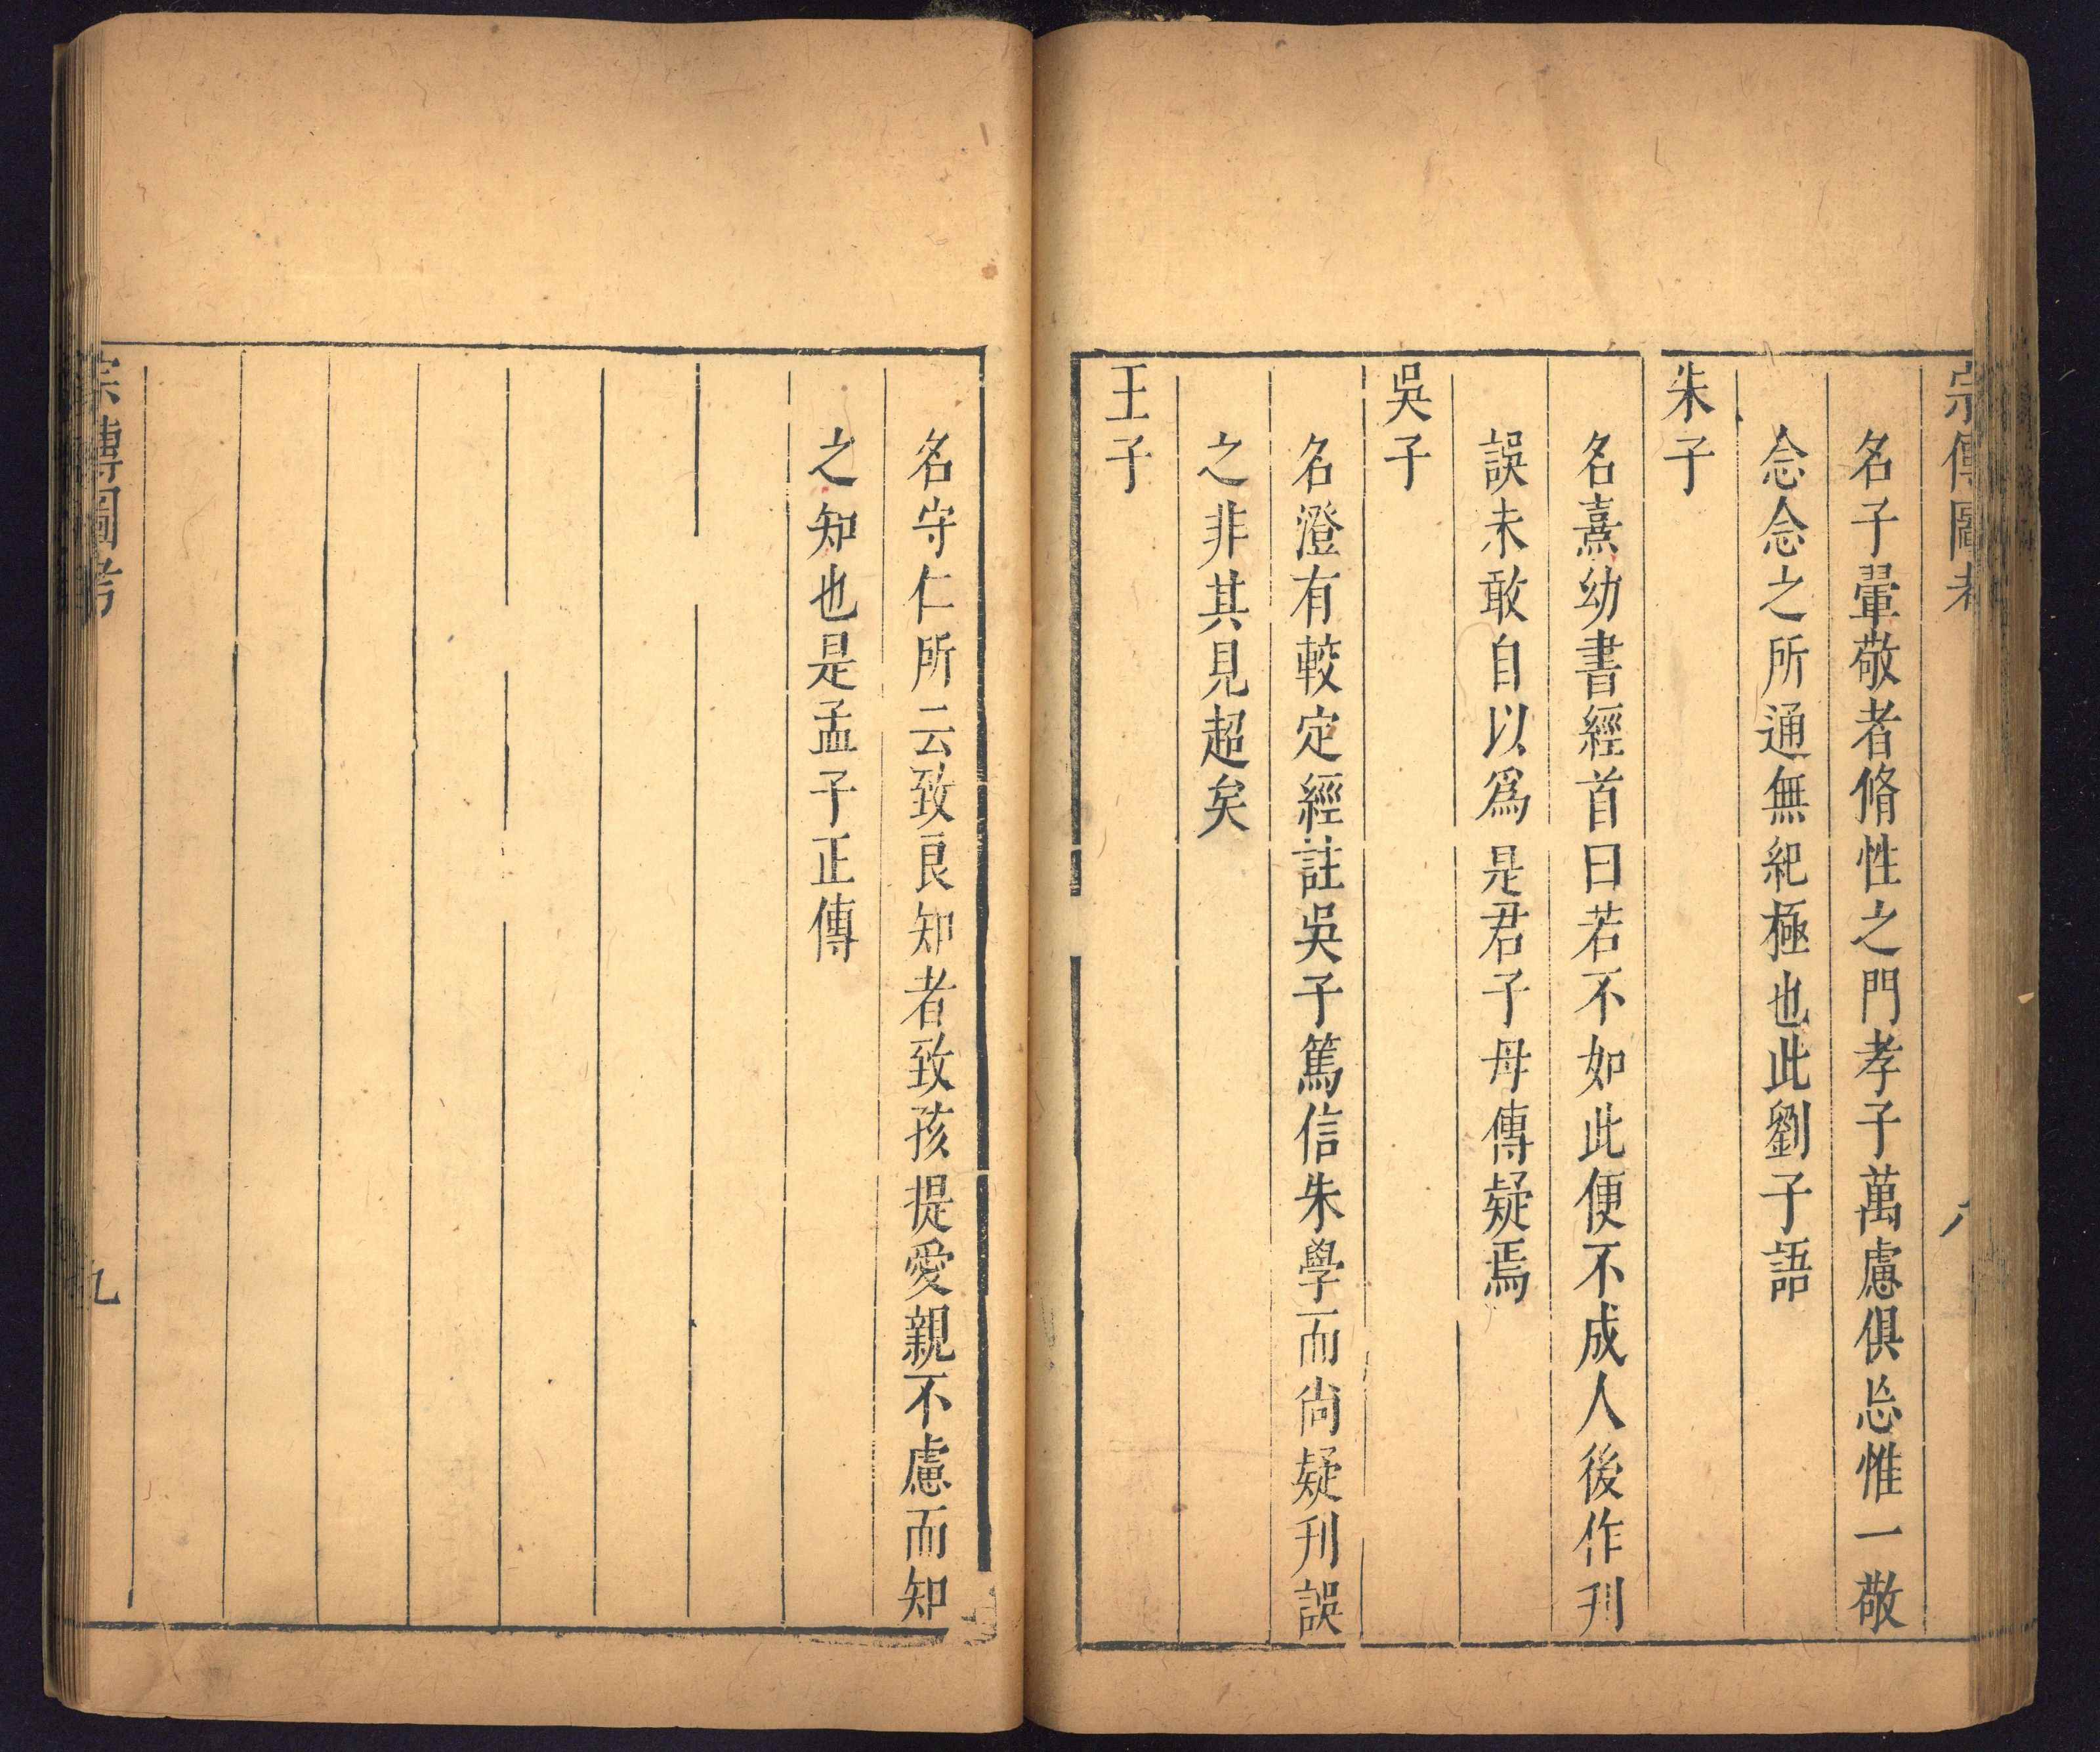 宗傳圖考
八
名子翬敬者脩性之門孝子萬慮俱忘惟一敬
念念之所通無紀極也此劉子語
朱子
名熹幼書經首曰若不如此便不成人後作刋
誤未敢自以爲是君子毋傳疑焉
吳子
名澄有較定經註吳子篤信朱學而尚疑刋誤
之非其見超矣
王子
名守仁所云致良知者致孩提愛親不慮而知
之知也是孟子正傳
宗傳圖考
九